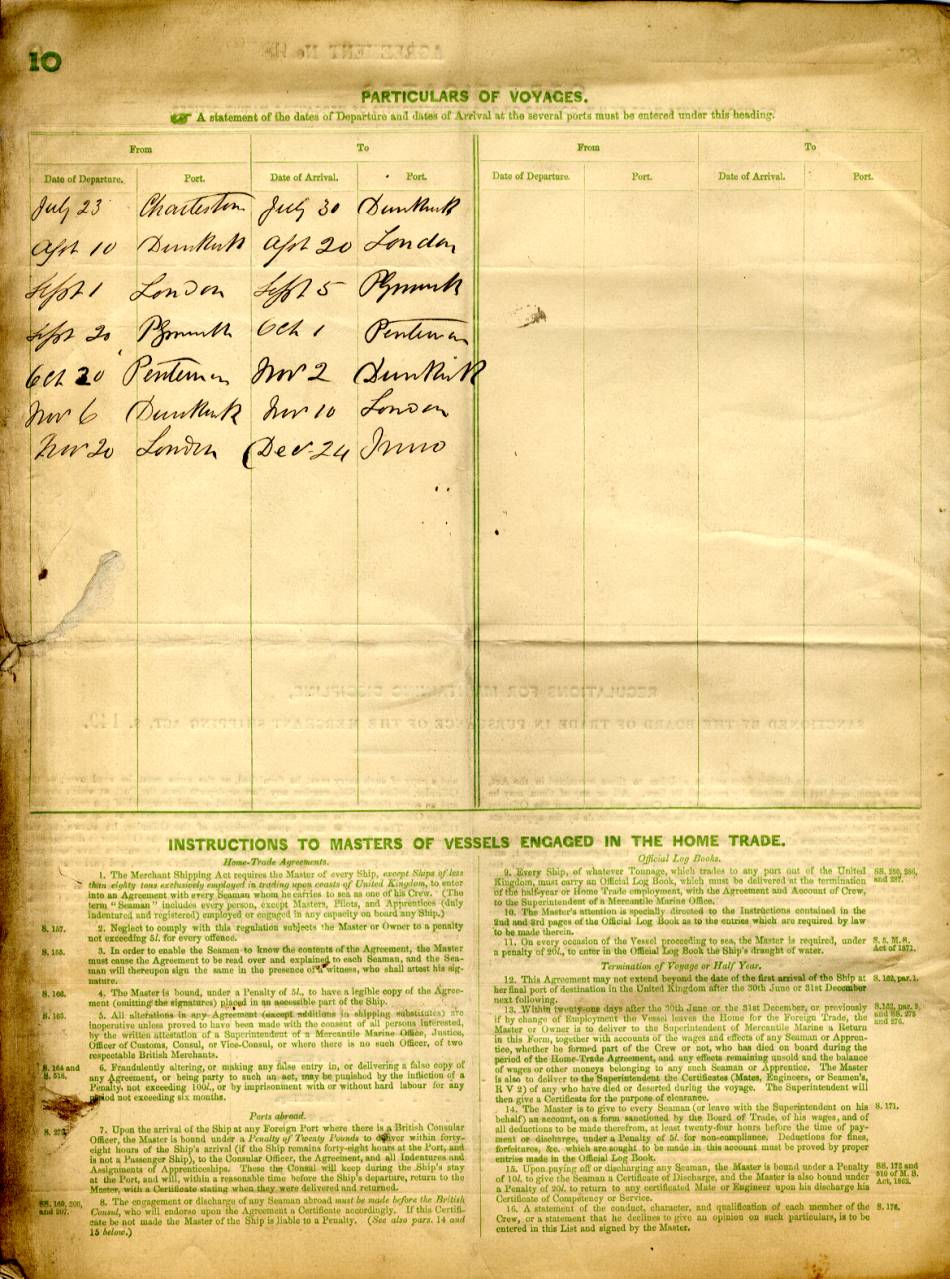 10
PARTICULARS OF VOYAGES.
A statement of the dates of Departure and dates of Arrival at the several ports must be entered under this heading.
From To From To
Date of Departure. Port. Date of Arrival. Port. Date of Departure. Port. Date of Arrival. Port.
July 23 Charleston July 30 Dunkirk
10 Dunkirk 20 London
Sept 1 London Sept 5 Plymouth
Sept 20 Plymouth Oct 1 Pentewan
Oct 20 Pentewan Nov 2 Dunkirk
Nov 6 Dunkirk Nov 10 London
Nov 20 London Dec 24
INSTRUCTIONS TO MASTERS OF VESSELS ENGAGED IN THE HOME TRADE.
Home-Trade Agreements.
1. The Merchant Shipping Act requires the Master of every Ship, except Ships of less
than eighty tons exclusively employed in trading upon coasts of United Kingdom, to enter
into an Agreement with every Seaman whom he carries to sea as one of his Crew. (The
term "Seaman" includes every person, except Masters, Pilots, and Apprentices (duly
indentured and registered) employed or engaged in any capacity on board any Ship.)
S. 157. 2. Neglect to comply with this regulation subjects the Master or Owner to a penalty
not exceeding 5l. for every offence.
S. 155. 3. In order to enable the Seamen to know the contents of the Agreement, the Master
must cause the Agreement to be read over and explained to each Seaman, and the Sea-
man will thereupon sign the same in the presence of a witness, who shall attest his sig-
nature.
S. 166. 4. The Master is bound, under a Penalty of 5l., to have a legible copy of the Agree-
ment (omitting the signatures) placed in an accessible part of the Ship.
S. 163. 5. All alterations in any Agreement (except additions in shipping substitutes) are
inoperative unless proved to have been made with the consent of all persons interested,
by the written attestation of a Superintendent of a Mercantile Marine Office, Justice,
Officer of Customs, Consul, or Vice-Consul, or where there is no such Officer, of two
respectable British Merchants.
S. 164 and 6. Fraudulently altering, or making any false entry in, or delivering a false copy of
S. 518. any Agreement, or being party to such an act, may be punished by the infliction of a
Penalty, not exceeding 100l., or by imprisonment with or without hard labour for any
period not exceeding six months.
Ports abroad.
7. Upon the arrival of the Ship at any Foreign Port where there is a British Consular
Officer, the Master is bound under a Penalty of Twenty Pounds to deliver within forty-
eight hours of the Ship's arrival (if the Ship remains forty-eight hours at the Port, and
is not a Passenger Ship), to the Consular Officer, the Agreement, and all Indentures and
Assignments of Apprenticeships. These the Consul will keep during the Ship's stay
at the Port, and will, within a reasonable time before the Ship's departure, return to the
Master, with a Certificate stating when they were delivered and returned.
SS. 160, 206, 8. The engagement or discharge of any Seaman abroad must be made before the British
and 207. Consul, who will endorse upon the Agreement a Certificate accordingly. If this Certifi-
cate be not made the Master of the Ship is liable to a Penalty. (See also pars. 14 and
15 below.)
Official Log Books.
9. Every Ship, of whatever Tonnage, which trades to any port out of the United SS. 280, 286,
Kingdom, must carry an Official Log Book, which must be delivered at the termination and 287.
of the half-year or Home Trade employment, with the Agreement and Account of Crew,
to the Superintendent of a Mercantile Marine Office.
10. The Master's attention is specially directed to the Instructions contained in the
2nd and 3rd pages of the Official Log Book as to the entries which are required by law
to be made therein.
11. On every occasion of the Vessel proceeding to sea, the Master is required, under S. 5, M. S.
a penalty of 20l., to enter in the Official Log Book the Ship's draught of water. Act of 1871.
Termination of Voyage or Half Year.
12. This Agreement may not extend beyond the date of the first arrival of the Ship at S. 162, par. 1.
her final port of destination in the United Kingdom after the 30th June or 31st December
next following.
13. Within twenty-one days after the 30th June or the 31st December, or previously
if by change of Employment the Vessel leaves the Home for the Foreign Trade, the and SS. 273
Master or Owner is to deliver to the Superintendent of Mercantile Marine a Return and 276.
in this Form, together with accounts of the wages and effects of any Seaman or Appren-
tice, whether he formed part of the Crew or not, who has died on board during the
period of the Home-Trade Agreement, and any effects remaining unsold and the balance
of wages or other moneys belonging to any such Seaman or Apprentice. The Master
is also to deliver to the Superintendent the Certificates (Mates, Engineers, or Seamen's,
R V 2) of any who have died or deserted during the voyage. The Superintendent will
then give a Certificate for the purpose of clearance.
14. The Master is to give to every Seaman (or leave with the Superintendent on his S. 171.
behalf) an account, on a form sanctioned by the Board of Trade, of his wages, and of
all deductions to be made therefrom, at least twenty-four hours before the time of pay-
ment or discharge, under a Penalty of 5l. for non-compliance. Deductions for fines,
forfeitures, &c. which are sought to be made in this account must be proved by proper
entries made in the Official Log Book.
15. Upon paying off or discharging any Seaman, the Master is bound under a Penalty SS. 172 and
of 10l. to give the Seaman a Certificate of Discharge, and the Master is also bound under of M. S.
a Penalty of 20l. to return to any certificated Mate or Engineer upon his discharge his Act, 1862.
Certificate of Competency or Service.
16. A statement of the conduct, character, and qualification of each member of the S. 176.
Crew, or a statement that he declines to give an opinion on such particulars, is to be
entered in this List and signed by the Master.